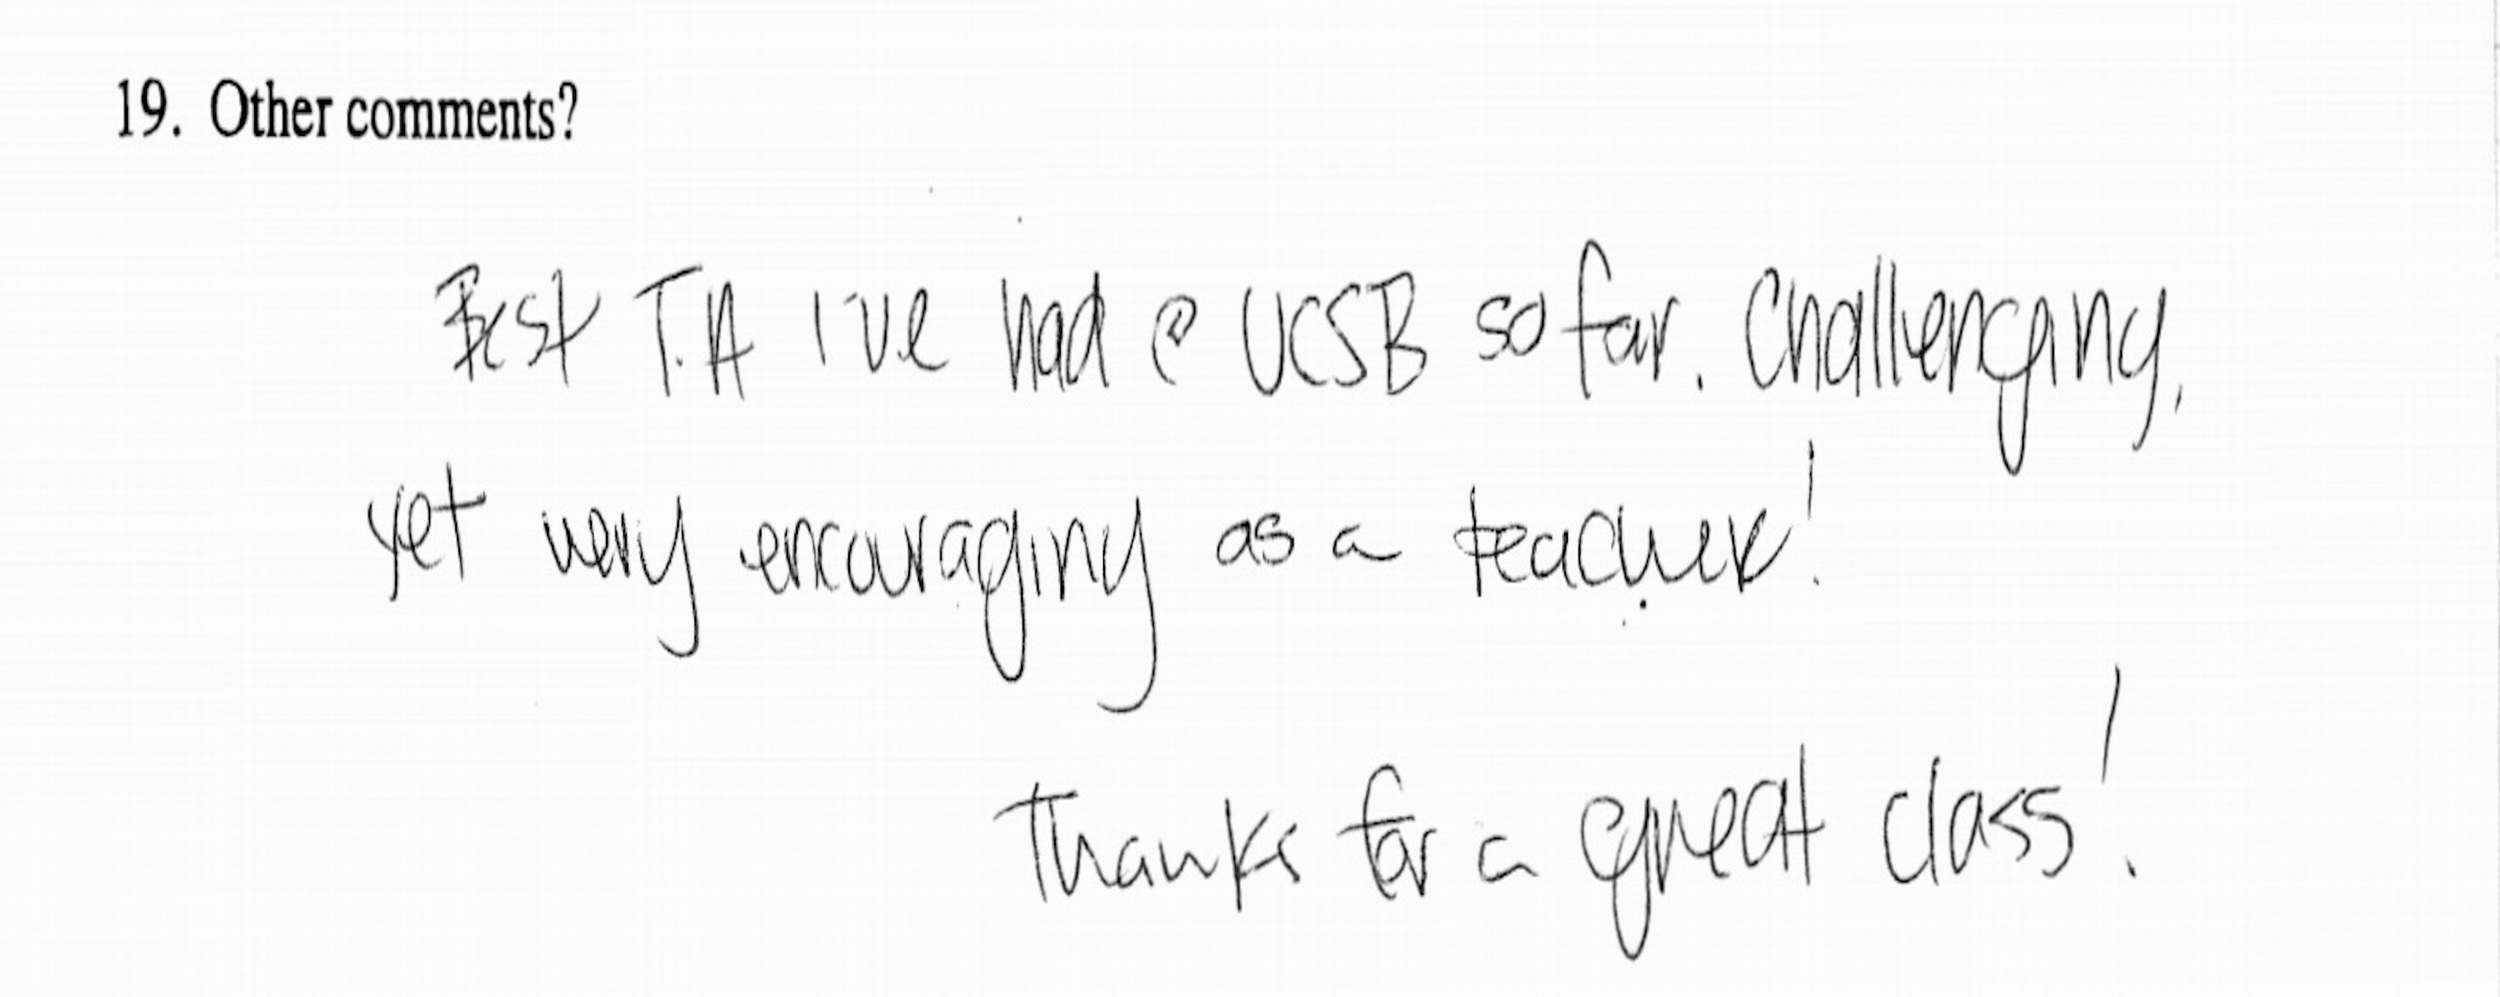 19. Other comments?
Best T.A I've had @ UCSB so far. Challenging,
yet very encouraging as a teacher!
Thanks for a great class!